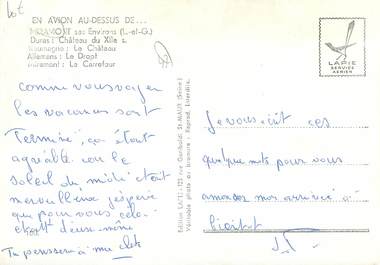 Lot
EN AVION AU-DESSUS DE...
MIRAMONT ses Environs (L.-et-G.)
Duras : Château du XIIe s.
Roumagne : Le Château
Allemans : Le Dropt
Miramont : La Carrefour
LAPIE
SERVICE
AERIEN
comme vous voyez
les vacances sont
Terminé, ça était
agréable car le
soleil du midi était
merveilleux j'espère
que pour vous cela
était deux même
Tu penssera à mes
Edition LAPIE, 123 rue Gambetta St-MAUR (Seine)
Véritable photo au bromure : Reprod. interdite.
je vous écrit ces
quelque mots pour vous
annoncer mon arrivée à
bientot